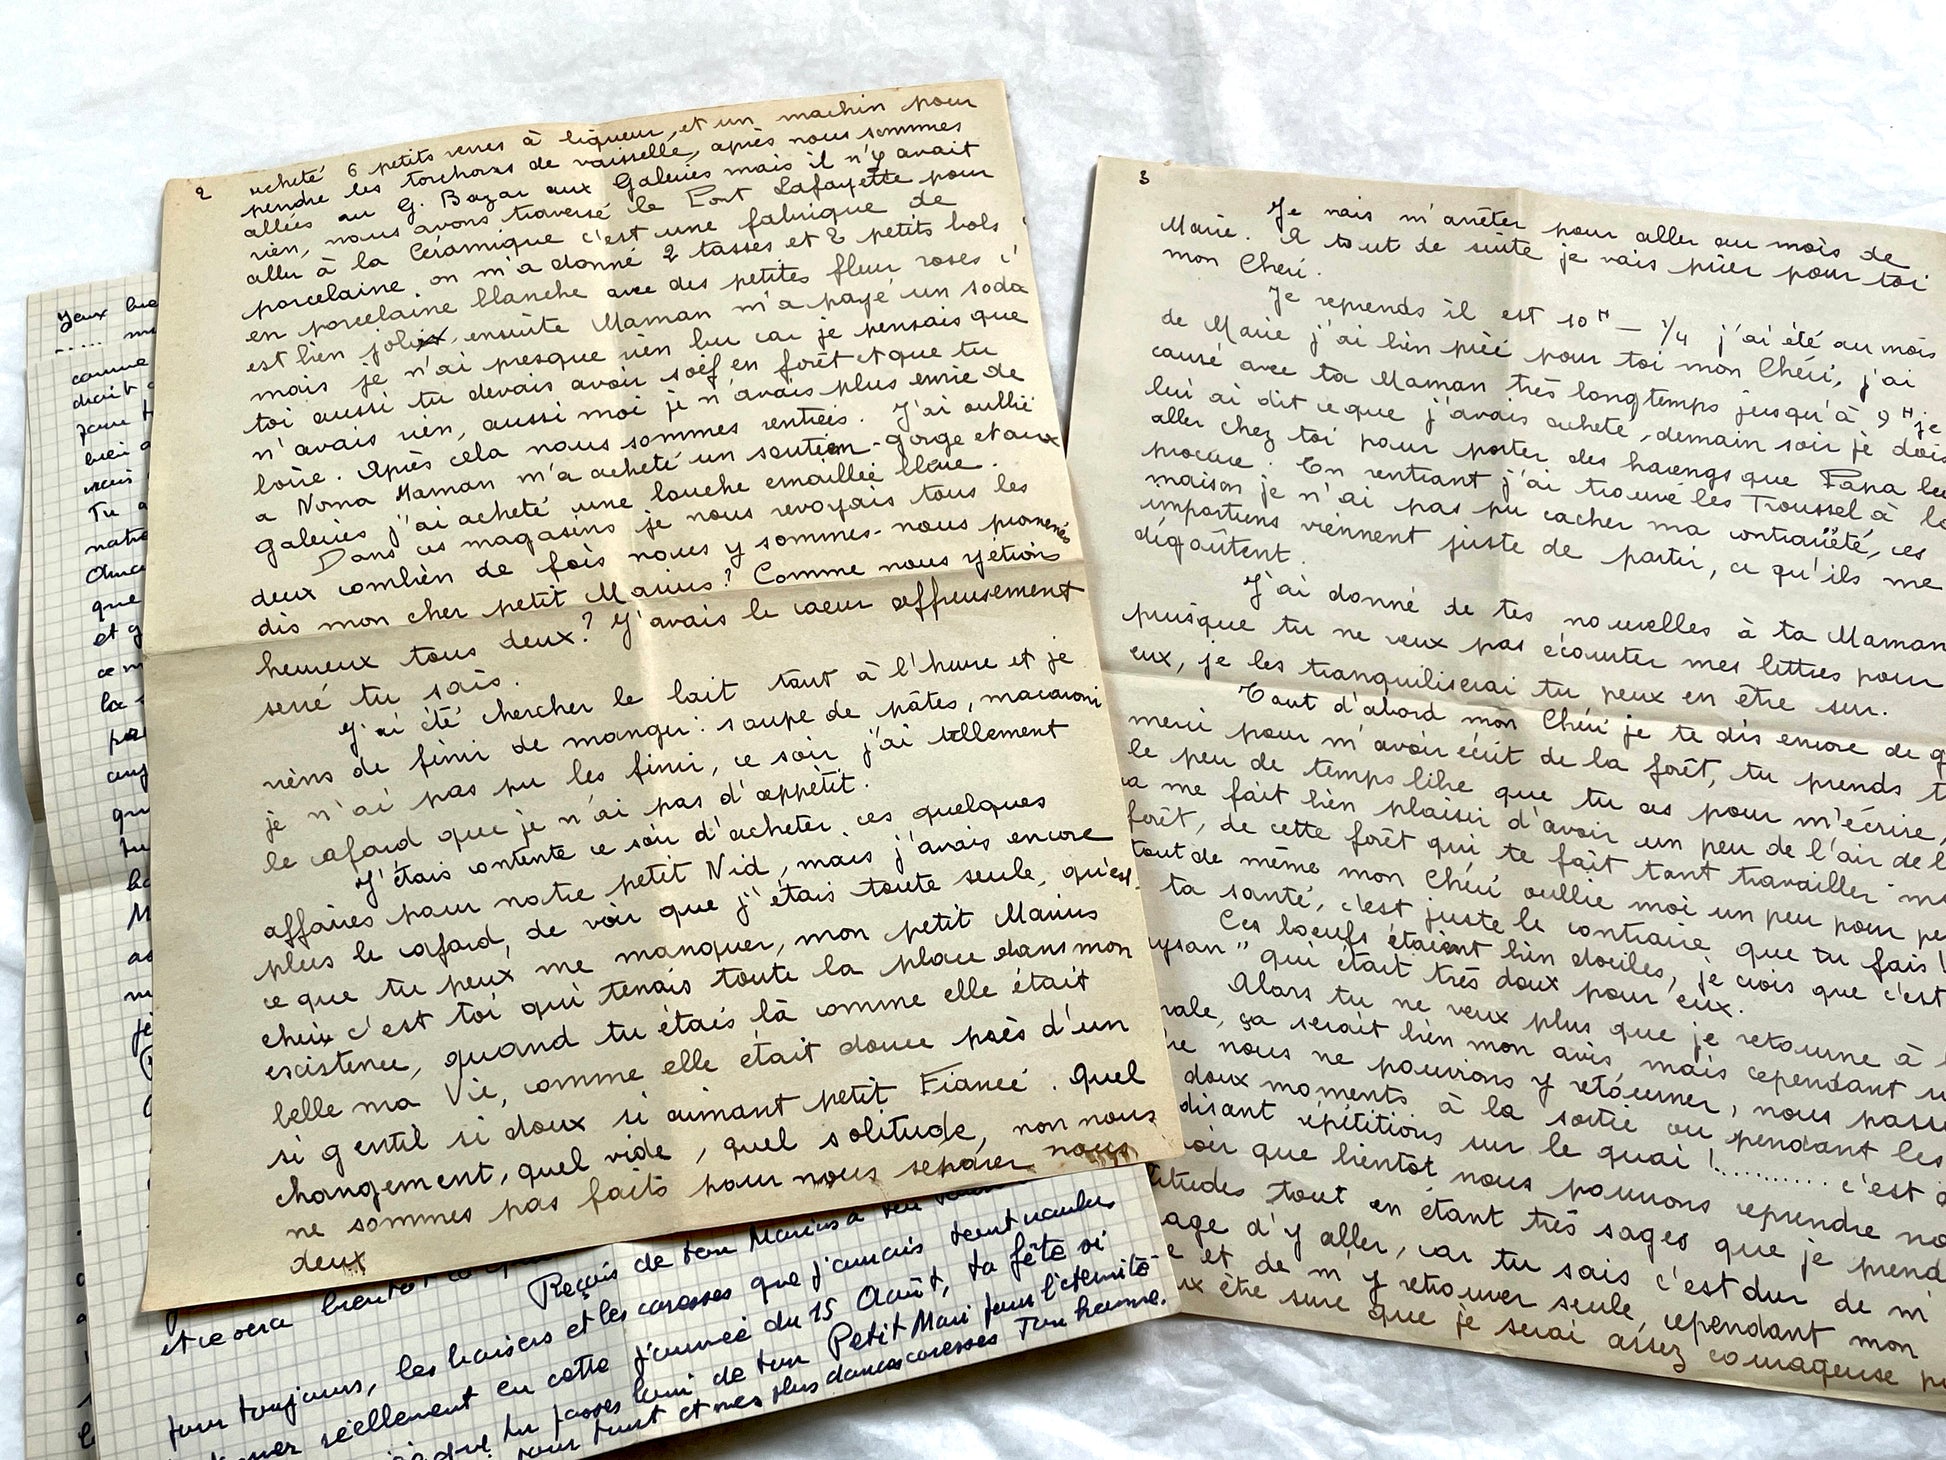 2
acheté 6 petits verres à liqueur, et un machin pour
pendre les torchons de vaisselle, après nous sommes
allées au G. Bazar aux Galeries mais il n'y avait
rien, nous avons traversé le Pont Lafayette pour
aller à la Céramique c'est une fabrique de
porcelaine on m'a donné 2 tasses et 2 petits bols
en porcelaine blanche avec des petites fleur roses c'
est bien joli, ensuite Maman m'a payé un soda
mais je n'ai presque rien bu car je pensais que
toi aussi tu devais avoir soif en forêt et que tu
n'avais rien, aussi moi je n'avais plus envie de
boire. Après cela nous sommes rentrées. J'ai oublié
a Noma Maman m'a acheté un soutien-gorge et aux
galeries j'ai acheté une louche émaillée bleue.
Dans ces magasins je nous revoyais tous les
deux combien de fois nous y sommes-nous promenés
dis mon cher petit Marius? Comme nous y étions
heureux tous deux? J'avais le cœur affreusement
serré tu sais.
J'ai été chercher le lait tout à l'heure et je
viens de finir de manger: soupe de pâtes, macaroni
je n'ai pas pu les finir, ce soir j'ai tellement
le cafard que je n'ai pas d'appétit.
J'étais contente ce soir d'acheter ces quelques
affaires pour notre petit Nid, mais j'avais encore
plus le cafard, de voir que j'étais toute seule, qu'est-
ce que tu peux me manquer, mon petit Marius
chéri c'est toi qui tenais toute la place dans mon
escistence, quand tu étais là comme elle était
belle ma Vie, comme elle était douce près d'un
si gentil si doux si aimant petit Fiancé. Quel
changement, quel vide, quel solitude, non nous
ne sommes pas faits pour nous séparer nous
deux
3
Je vais m'arrêter pour aller au mois de
Marie. A tout de suite je vais prier pour toi
mon Chéri.
Je reprends il est 10 H - 1/4 j'ai été au mois
de Marie j'ai bien prié pour toi mon Chéri, j'ai
causé avec ta Maman très longtemps jusqu'à 9 H. je
lui ai dit ce que j'avais acheté, demain soir je dois
aller chez toi pour porter des harengs que Papa leu
procure. En rentrant j'ai trouvé les Troussel à la
maison je n'ai pas pu cacher ma contrariété, ces
importuns viennent juste de partir, ce qu'ils me
dégoûtent.
J'ai donné de tes nouvelles à ta Maman
puisque tu ne veux pas écourter mes lettres pour
eux, je les tranquiliserai tu peux en être sur.
Tout d'abord mon Chéri je te dis encore de g
merci pour m'avoir écrit de la forêt, tu prends t
le peu de temps libre que tu as pour m'écrire,
ça me fait bien plaisir d'avoir un peu de l'air de l
forêt, de cette forêt qui te fait tant travailler
tout de même mon Chéri oublie moi un peu pour pe
ta santé, c'est juste le contraire que tu fais!
Ces bœufs étaient bien dociles, je crois que c'est
ysan" qui était très doux pour eux.
Alors tu ne veux plus que je retourne à l
rale, ça serait bien mon avis, mais cependant
nous ne pouvions y retourner, nous passi
doux moments à la sortie ou pendant les
disant répétitions sur le quai!.......... c'est
oir que bientôt nous pourrons reprendre no
titudes tout en étant très sages que je prend
age d'y aller, car tu sais c'est dur de m'
e et de m'y retrouver seule, cependant mon
ux être sure que je serai assez courageuse
Yeux
comme
droit
pour
bien
mais
Tu
notre
que
et
la
Reçois de ton Marius
pour toujours, les baisers et les caresses que j'aurais tant voulu
réellement en cette journée du 15 Août, ta fête si
que tu passes loin de ton Petit Mari pour l'éternité
tout et mes plus douces caresses Ton homme.